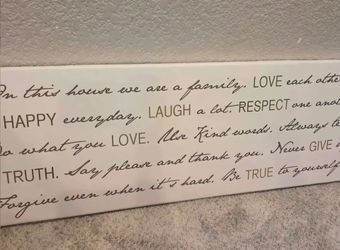 In this house we are a family. LOVE each othe
HAPPY everyday. LAUGH a lot. RESPECT one ano
Do what you LOVE. Use Kind words. Always te
TRUTH. Say please and thank you. Never GIVE
Forgive even when it's hard. Be TRUE to yourself